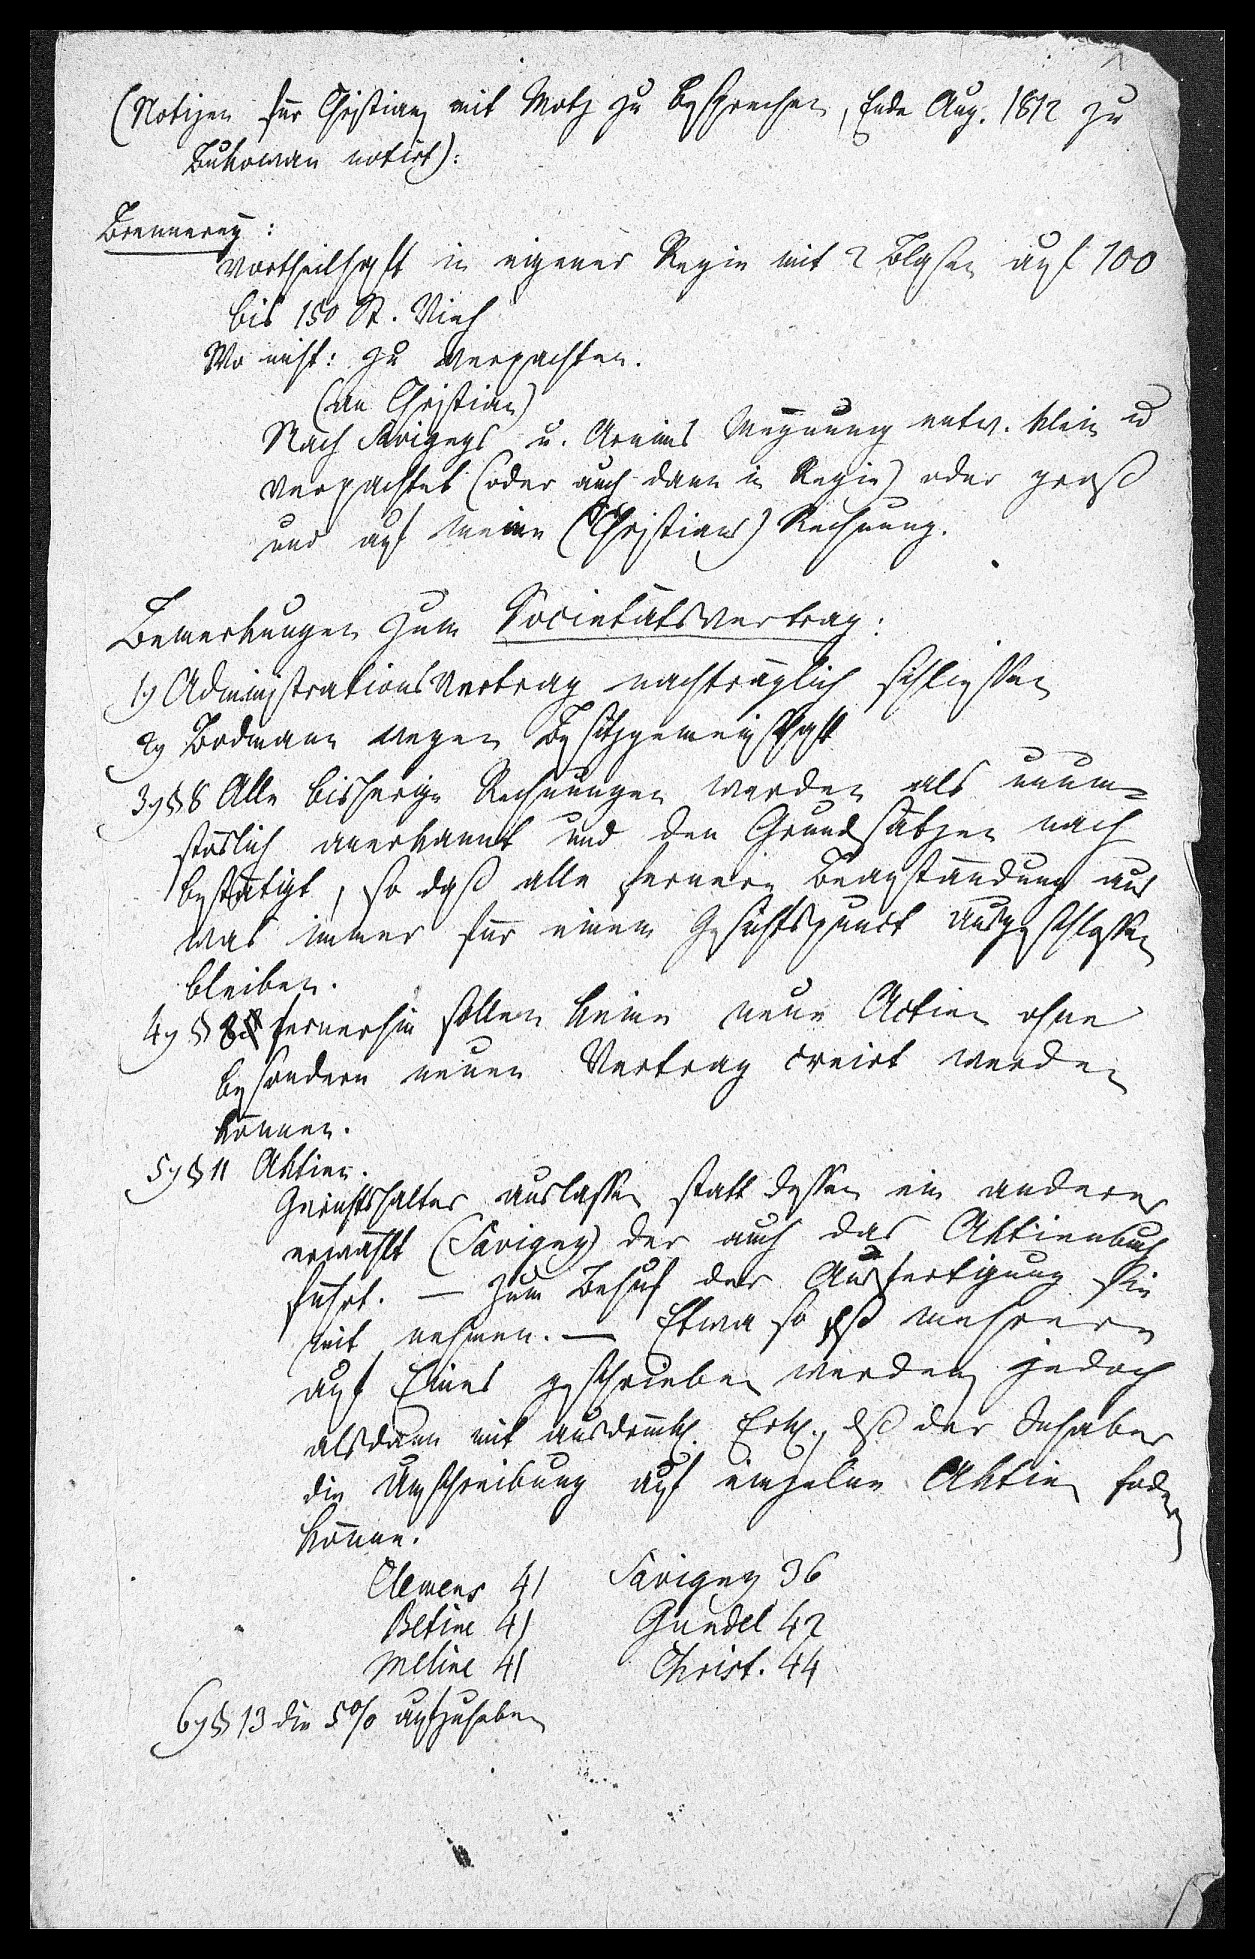 (Notizen für Christian, mit Motz zu besprechen, Ende Aug. 1812 zu
Bukowan notirt):
Brennerey:
Vortheilhaft in eigener Regie mit 2 Blasen auf 100
bis 150 St. Vieh
Wo nicht: zu verpachten.
(an Christian)
Nach Savignys u. Arnims Meynung entw. klein u
verpachtet (oder auch dann in Regie) oder groß
und auf meine (Christians) Rechnung.
Bemerkungen zum Societätsvertrag:
1) Administrationsvertrag nachträglich schliessen
2) Bodmann wegen Besitzgemeinschaft
3) § 8 Alle bisherige Rechnungen werden als unum=
stöslich anerkannt und den Grundsätzen nach
bestätigt, so daß alle fernere Beanständung aus
was immer für einem Gesichtspunct ausgeschlossen
bleiben.
4) § 8 fernerhin sollen keine neue Actien ohne
besondern neuen Vertrag creirt werden
können.
5) § 11 Aktien.
Gerichtshalter auslassen statt dessen ein anderer
erwählt (Savigny) der auch das Aktienbuch
führt. — Zum Behuf der Ausfertigung sie
mit nehmen. — Etwa so dß mehrere
auf Eines geschrieben werden, jedoch
alsdann mit ausdrückl. Erkl., dß der Inhaber
die Umschreibung auf einzelne Aktien fodern
könne.
Clemens 41 Savigny 36
Betine 41 Gundel 42
Meline 41 Christ. 44
6) § 13 die 5% aufzuheben